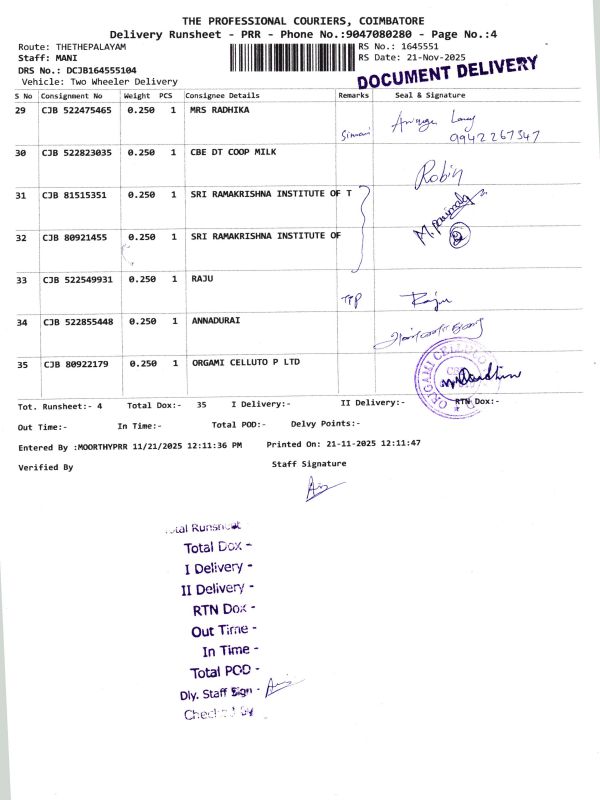 THE PROFESSIONAL COURIERS, COIMBATORE
Delivery Runsheet - PRR - Phone No.:9047080280 - Page No.:4
Route: THETHEPALAYAM RS No.: 1645551
Staff: MANI RS Date: 21-Nov-2025
DRS No.: DCJB164555104
Vehicle: Two Wheeler Delivery
DOCUMENT DELIVERY
S No Consignment No Weight PCS Consignee Details Remarks Seal & Signature
29 CJB 522475465 0.250 1 MRS RADHIKA
9942267547
30 CJB 522823035 0.250 1 CBE DT COOP MILK
Robin
31 CJB 81515351 0.250 1 SRI RAMAKRISHNA INSTITUTE OF T
32 CJB 80921455 0.250 1 SRI RAMAKRISHNA INSTITUTE OF
33 CJB 522549931 0.250 1 RAJU
TPP Raju
34 CJB 522855448 0.250 1 ANNADURAI
35 CJB 80922179 0.250 1 ORGAMI CELLUTO P LTD
ORIGAMI CELLULO
Tot. Runsheet:- 4 Total Dox:- 35 I Delivery:- II Delivery:- RTN Dox:-
Out Time:- In Time:- Total POD:- Delvy Points:-
Entered By :MOORTHYPRR 11/21/2025 12:11:36 PM Printed On: 21-11-2025 12:11:47
Verified By Staff Signature
Total Runsheet
Total Dox -
I Delivery -
II Delivery -
RTN Dox -
Out Time -
In Time -
Total POD -
Dly. Staff Sign -
Checked By